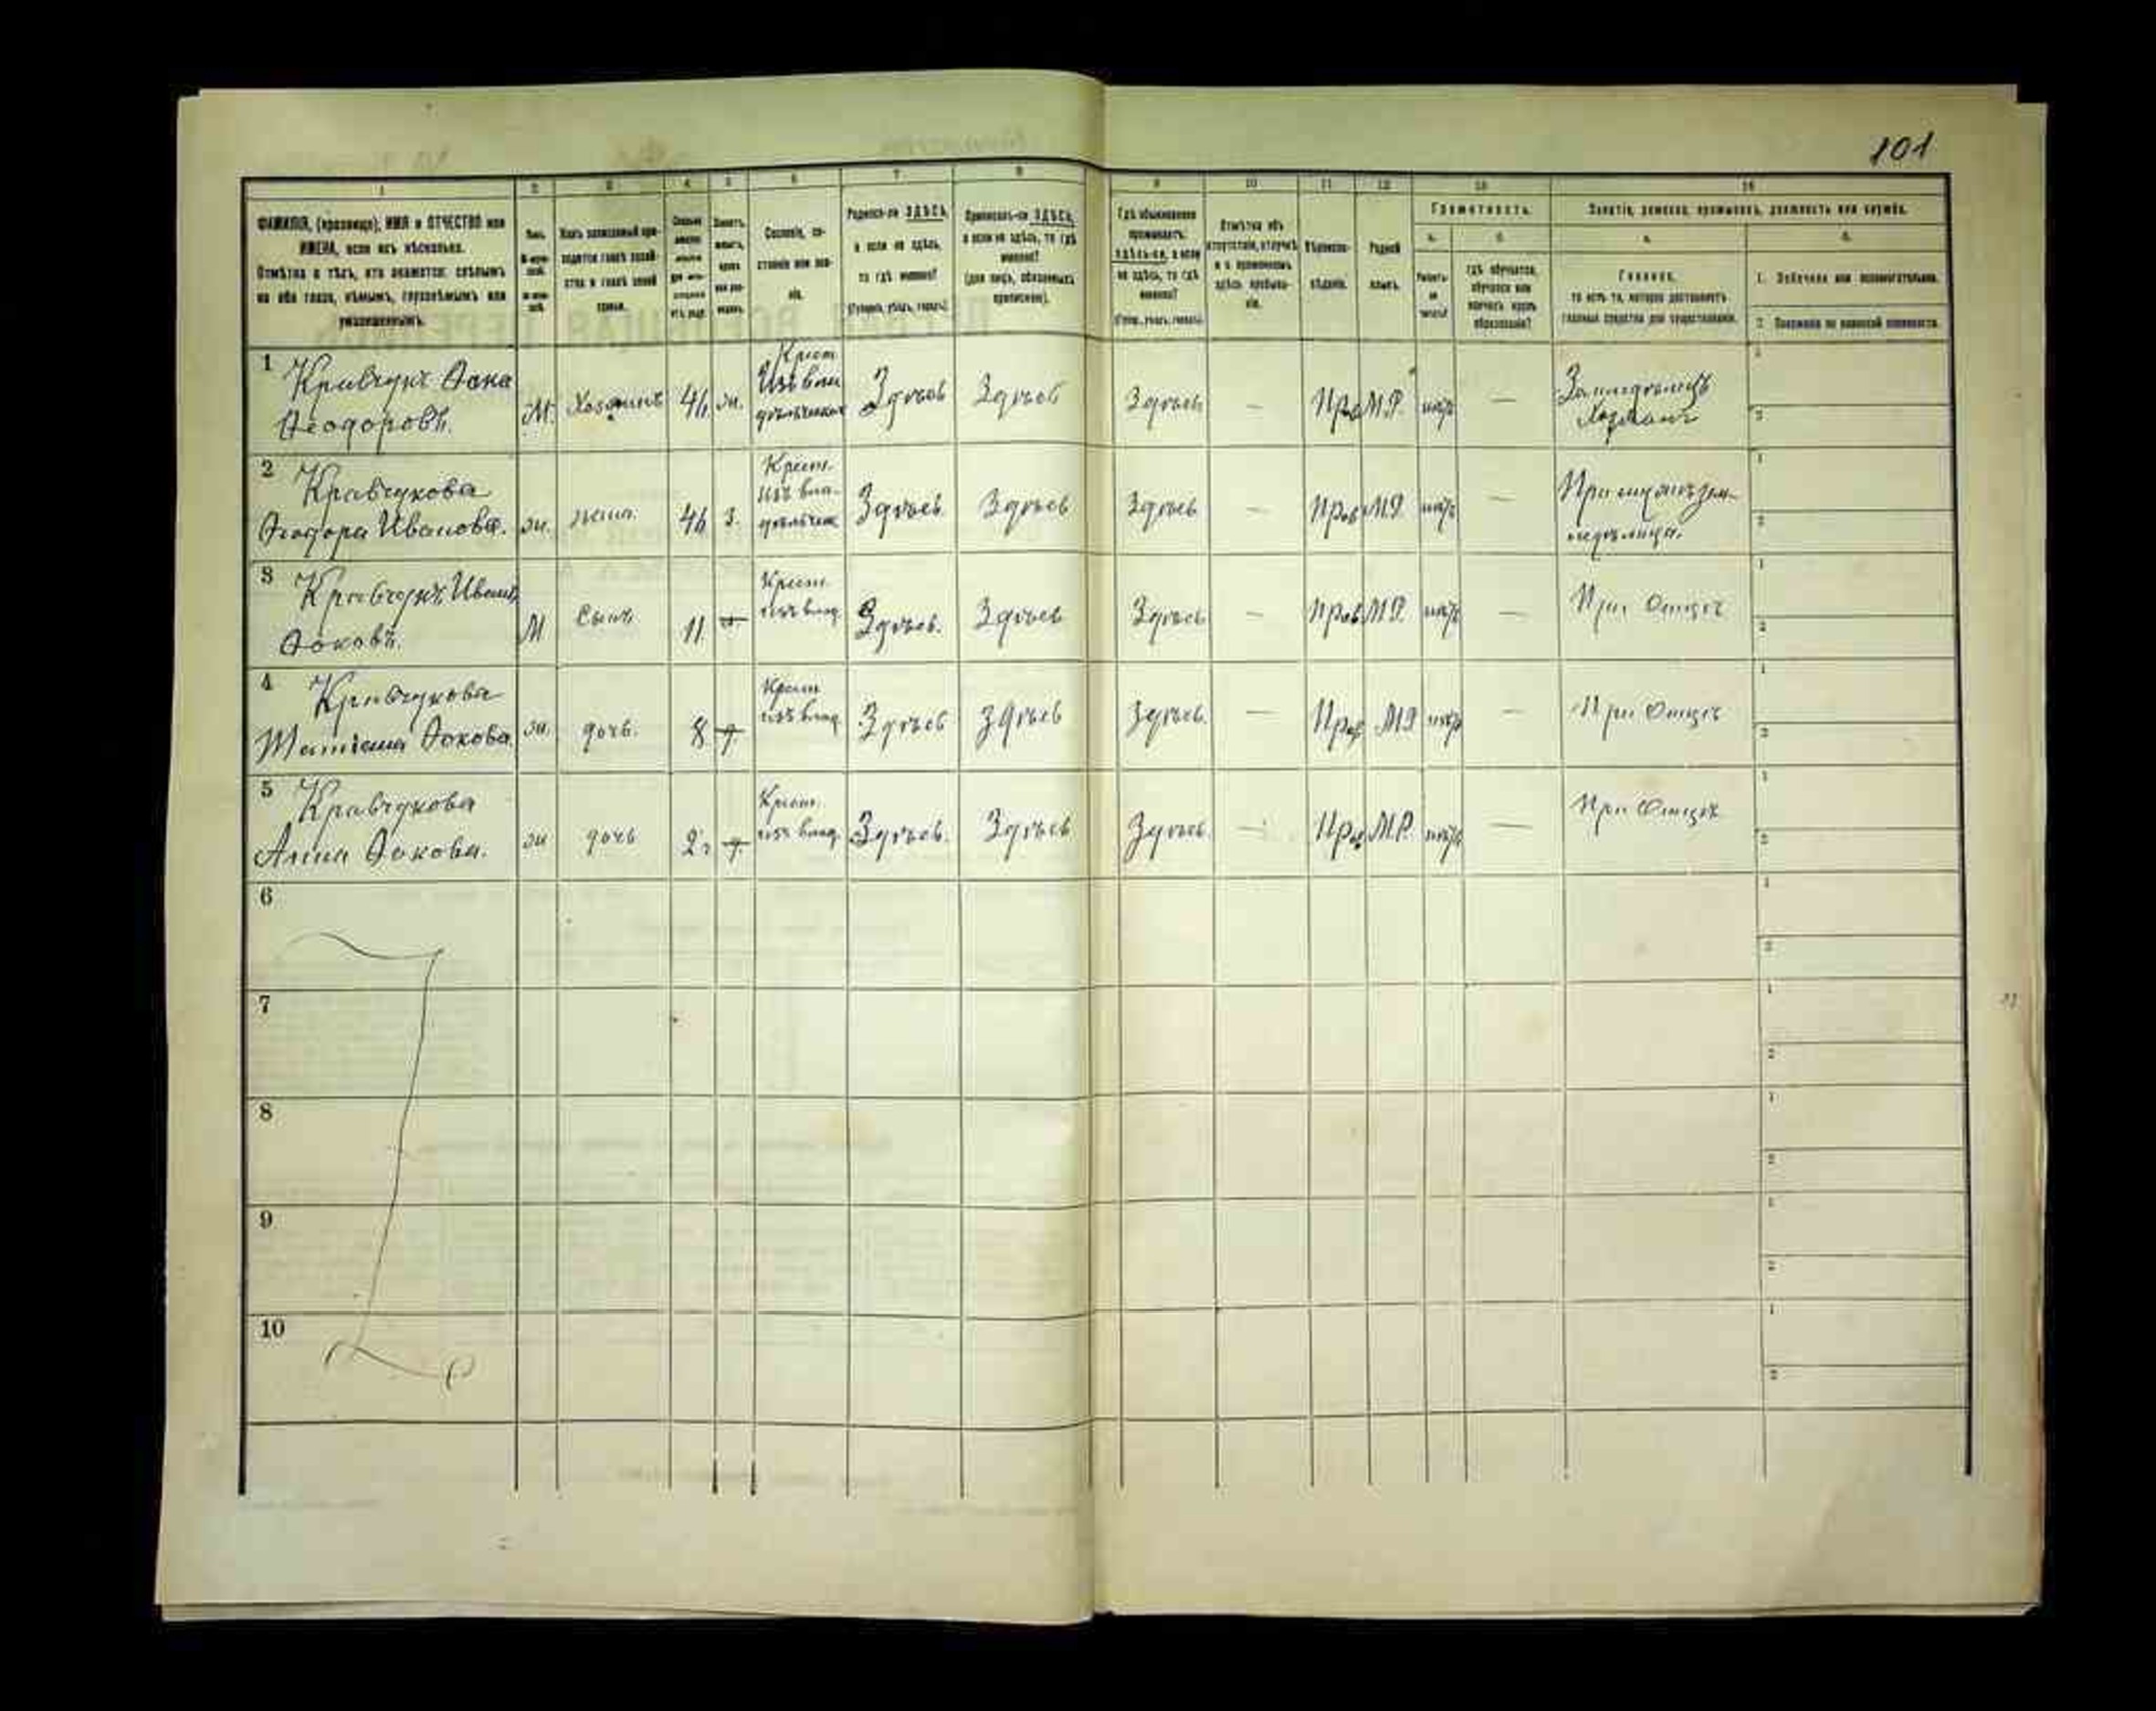 101
1 2 3 4 5 6 7 8 9 10 11 12 13 14
ФАМИЛІЯ, (прозвище), ИМЯ и ОТЧЕСТВО или
ИМЕНА, если ихъ нѣсколько.
Отмѣтка о тѣхъ, кто окажется: слѣпымъ
на оба глаза, нѣмымъ, глухонѣмымъ или
умалишеннымъ.
Полъ.
Какъ записанный при-
ходится главѣ хозяй-
ства и главѣ своей
семьи.
Сословіе, со-
стояніе или зва-
ніе.
Родился-ли ЗДѢСЬ,
а если не здѣсь,
то гдѣ именно?
(Губернія, уѣздъ, городъ).
Приписанъ-ли ЗДѢСЬ,
а если не здѣсь, то гдѣ
именно?
(для лицъ, обязанныхъ
припискою).
Гдѣ обыкновенно
проживаетъ:
здѣсь-ли, а если
не здѣсь, то гдѣ
именно?
(Губер., уѣздъ, городъ).
Отмѣтка объ
отсутствіи, отлучкѣ
и о временномъ
здѣсь пребыва-
ніи.
Вѣроиспо-
вѣданіе.
Родной
языкъ.
Грамотность.
а. б.
Умѣетъ-
ли
читать?
Гдѣ обучается,
обучался или
кончилъ курсъ
образованія?
Занятіе, ремесло, промыселъ, должность или служба.
а. б.
Главное,
то есть то, которое доставляетъ
главныя средства для существованія.
1. Побочное или вспомогательное.
2. Положеніе по воинской повинности.
1 Кравчукъ Фока
Ѳеодоровъ.
М. Хозяинъ 46 ж. Крест
Изъ вла
дѣльческ Здѣсь Здѣсь Здѣсь — Прав М.Р. нѣтъ — Земледѣлецъ
Хозяинъ
2 Кравчукова
Ѳеодора Иванова.
ж. жена 46 З. Крест.
изъ вла-
дѣльческ Здѣсь Здѣсь Здѣсь — Прав М.Р. нѣтъ — При мужѣ зем-
ледѣлица.
3 Кравчукъ Иванъ
Фоковъ.
М Сынъ 11 Крест.
изъ влад. Здѣсь. Здѣсь Здѣсь — Прав. М.Р. нѣтъ — При Отцѣ
4 Кравчукова
Татіана Фокова
ж. дочь. 8 Крест
изъ влад Здѣсь Здѣсь Здѣсь. — Прав М.Р нѣтъ — При Отцѣ
5 Кравчукова
Анна Фокова.
ж дочь 2г Крест.
изъ влад. Здѣсь. Здѣсь Здѣсь. — Прав М.Р. нѣтъ — При Отцѣ
6
7
8
9
10